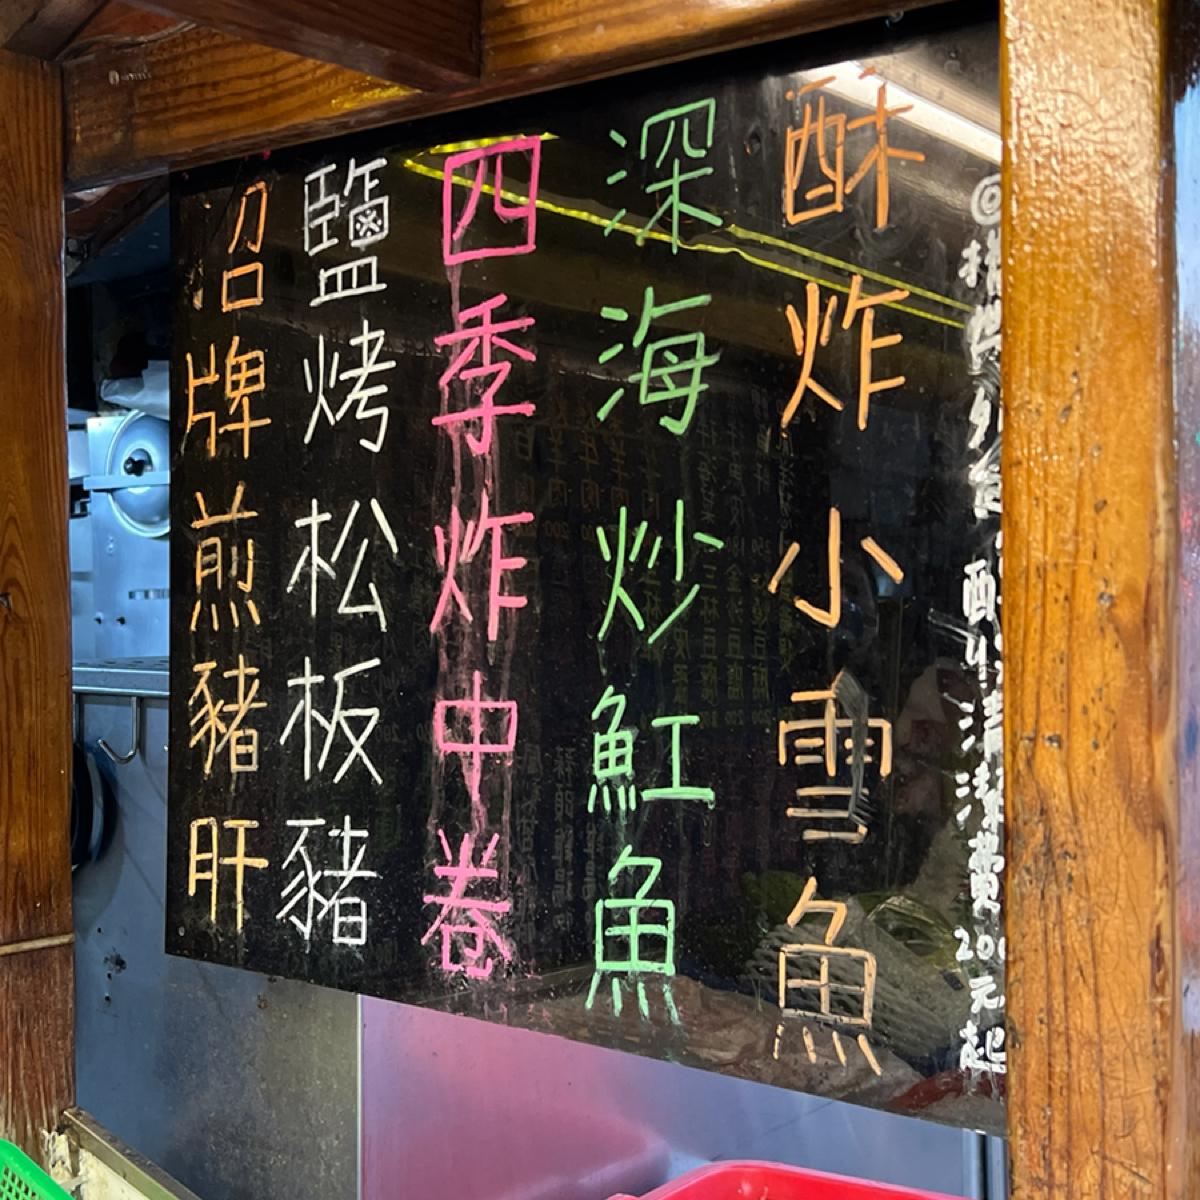 酥炸小雪魚
深海炒魟魚
四季炸中卷
鹽烤松板豬
招牌煎豬肝
清潔費200元起